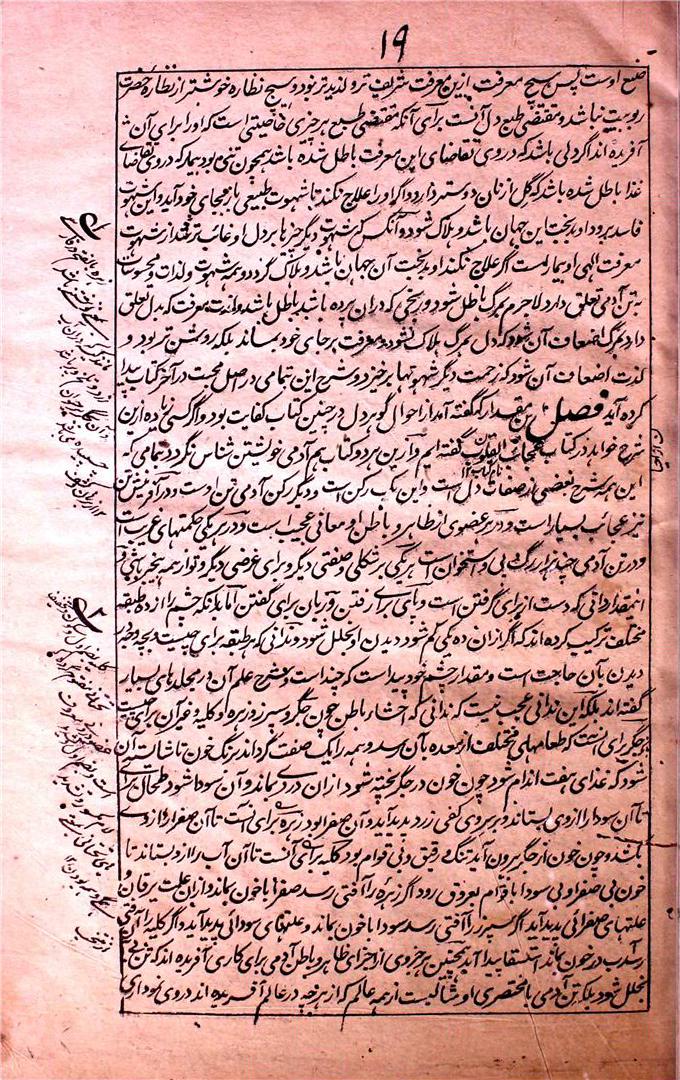 ۱۹
صنع اوست پس هیچ معرفت ازین معرفت شریف تر و لذیذتر نبود و هیچ نظاره خوشتر از نظاره حضرت
ربوبیت نباشد و مقتضی طبع دل آنست برای آنکه مقتضی طبع هر چیزی خاصیتی است که او را برای آن
آفریده اند اگر دلی باشد که در وی تقاضای این معرفت باطل شده باشد همچون تنی بود بیمار که در وی تقاضای
غذا باطل شده باشد که گل از نان دوستر دارد و اگر او را علاج نکنند تا شهوت طبیعی باز بجای خود آید و این شهوت
فاسد برود او بدبخت این جهان باشد و هلاک شود و آنکس که شهوت دیگر چیزها بر دل او غالب تر شد از شهوت
معرفت الهی او بیمارست اگر علاج نکنند او بدبخت آن جهان باشد و هلاک گردد و همه شهوت و لذات و محسوسات
به تن آدمی تعلق دارد لاجرم بمرگ باطل شود و رنجی که در آن برده باشد باطل باشد و لذت معرفت که بدل تعلق
دارد بمرگ اضعاف آن شود که دل بمرگ هلاک نشود و معرفت بر جای خود بماند بلکه روشن تر بود و
لذت اضعاف آن شود که زحمت دیگر شهوتها برخیزد و شرح این تمامی در اصل محبت در آخر کتاب پیدا
کرده آید فصل این مقدار که گفته آمد از احوال گوهر دل در چنین کتاب کفایت بود و اگر کسی زیاده این
شرح خواهد در کتاب عجائب القلوب گفته ایم و ازین هر دو کتاب هم آدمی خویشتن شناس نگردد تمامی که
این همه شرح بعضی از صفات دل است و این یک رکن است و دیگر رکن آدمی تن اوست و در آفرینش تن
نیز عجائب بسیار است و در هر عضوی از ظاهر و باطن او معانی عجیب است و در هر یکی حکمتهای غریب است
و در تن آدمی چند هزار رگ و پی و استخوان است هر یکی بر شکلی و صفتی دیگر و برای غرضی دیگر و تو از همه بیخبر باشی و
اینمقدار دانی که دست از برای گرفتن است و پای برای رفتن و زبان برای گفتن اما بدانکه چشم را از ده طبقه
مختلف ترکیب کرده اند که اگر از آن ده یکی کم شود دیدن او بخلل شود و ندانی که هر طبقه برای چیست و بچه وجه در
دیدن بآن حاجت است و مقدار چشم خود پیداست که چند است و شرح علم آن در مجلدهای بسیار
گفته اند بلکه این ندانی عجب نیست که ندانی که احشاء باطن چون جگر و سپرز و زهره و کلیه و غیر آن برای چیست
جگر برای آنست که طعامهای مختلف از معده بآن رسد و همه را یک صفت گرداند برنگ خون تا شایسته آن
شود که غذای هفت اندام شود چون خون در جگر پخته شود از آن دردی بماند و آن سودا شود طحال برای
تا آن سودا از وی بستاند و بر سر وی کفی زرد پدید آید و آن صفرا بود زهره برای آنست تا آن صفرا از وی
باشد و چون خون از جگر بیرون آید تنک و رقیق و بی قوام بود کلیه برای آنست تا آن آب را از وی بستاند تا
خون بی صفرا و بی سودا با قوام بعروق رود اگر زهره را آفتی رسد صفرا با خون بماند و از آن علت یرقان و
علتهای صفرائی پدید آید اگر سپرز را آفتی رسد سودا با خون بماند و علتهای سودائی پدید آید و اگر کلیه را آفتی
رسد آب در خون بماند استسقا پیدا آید همچنین هر جزوی از اجزای ظاهر و باطن آدمی برای کاری آفریده اند که تن بی
بخلل شود بلکه تن آدمی با مختصری او مثالیست از همه عالم که از هر چه در عالم آفریده اند در وی نموداری